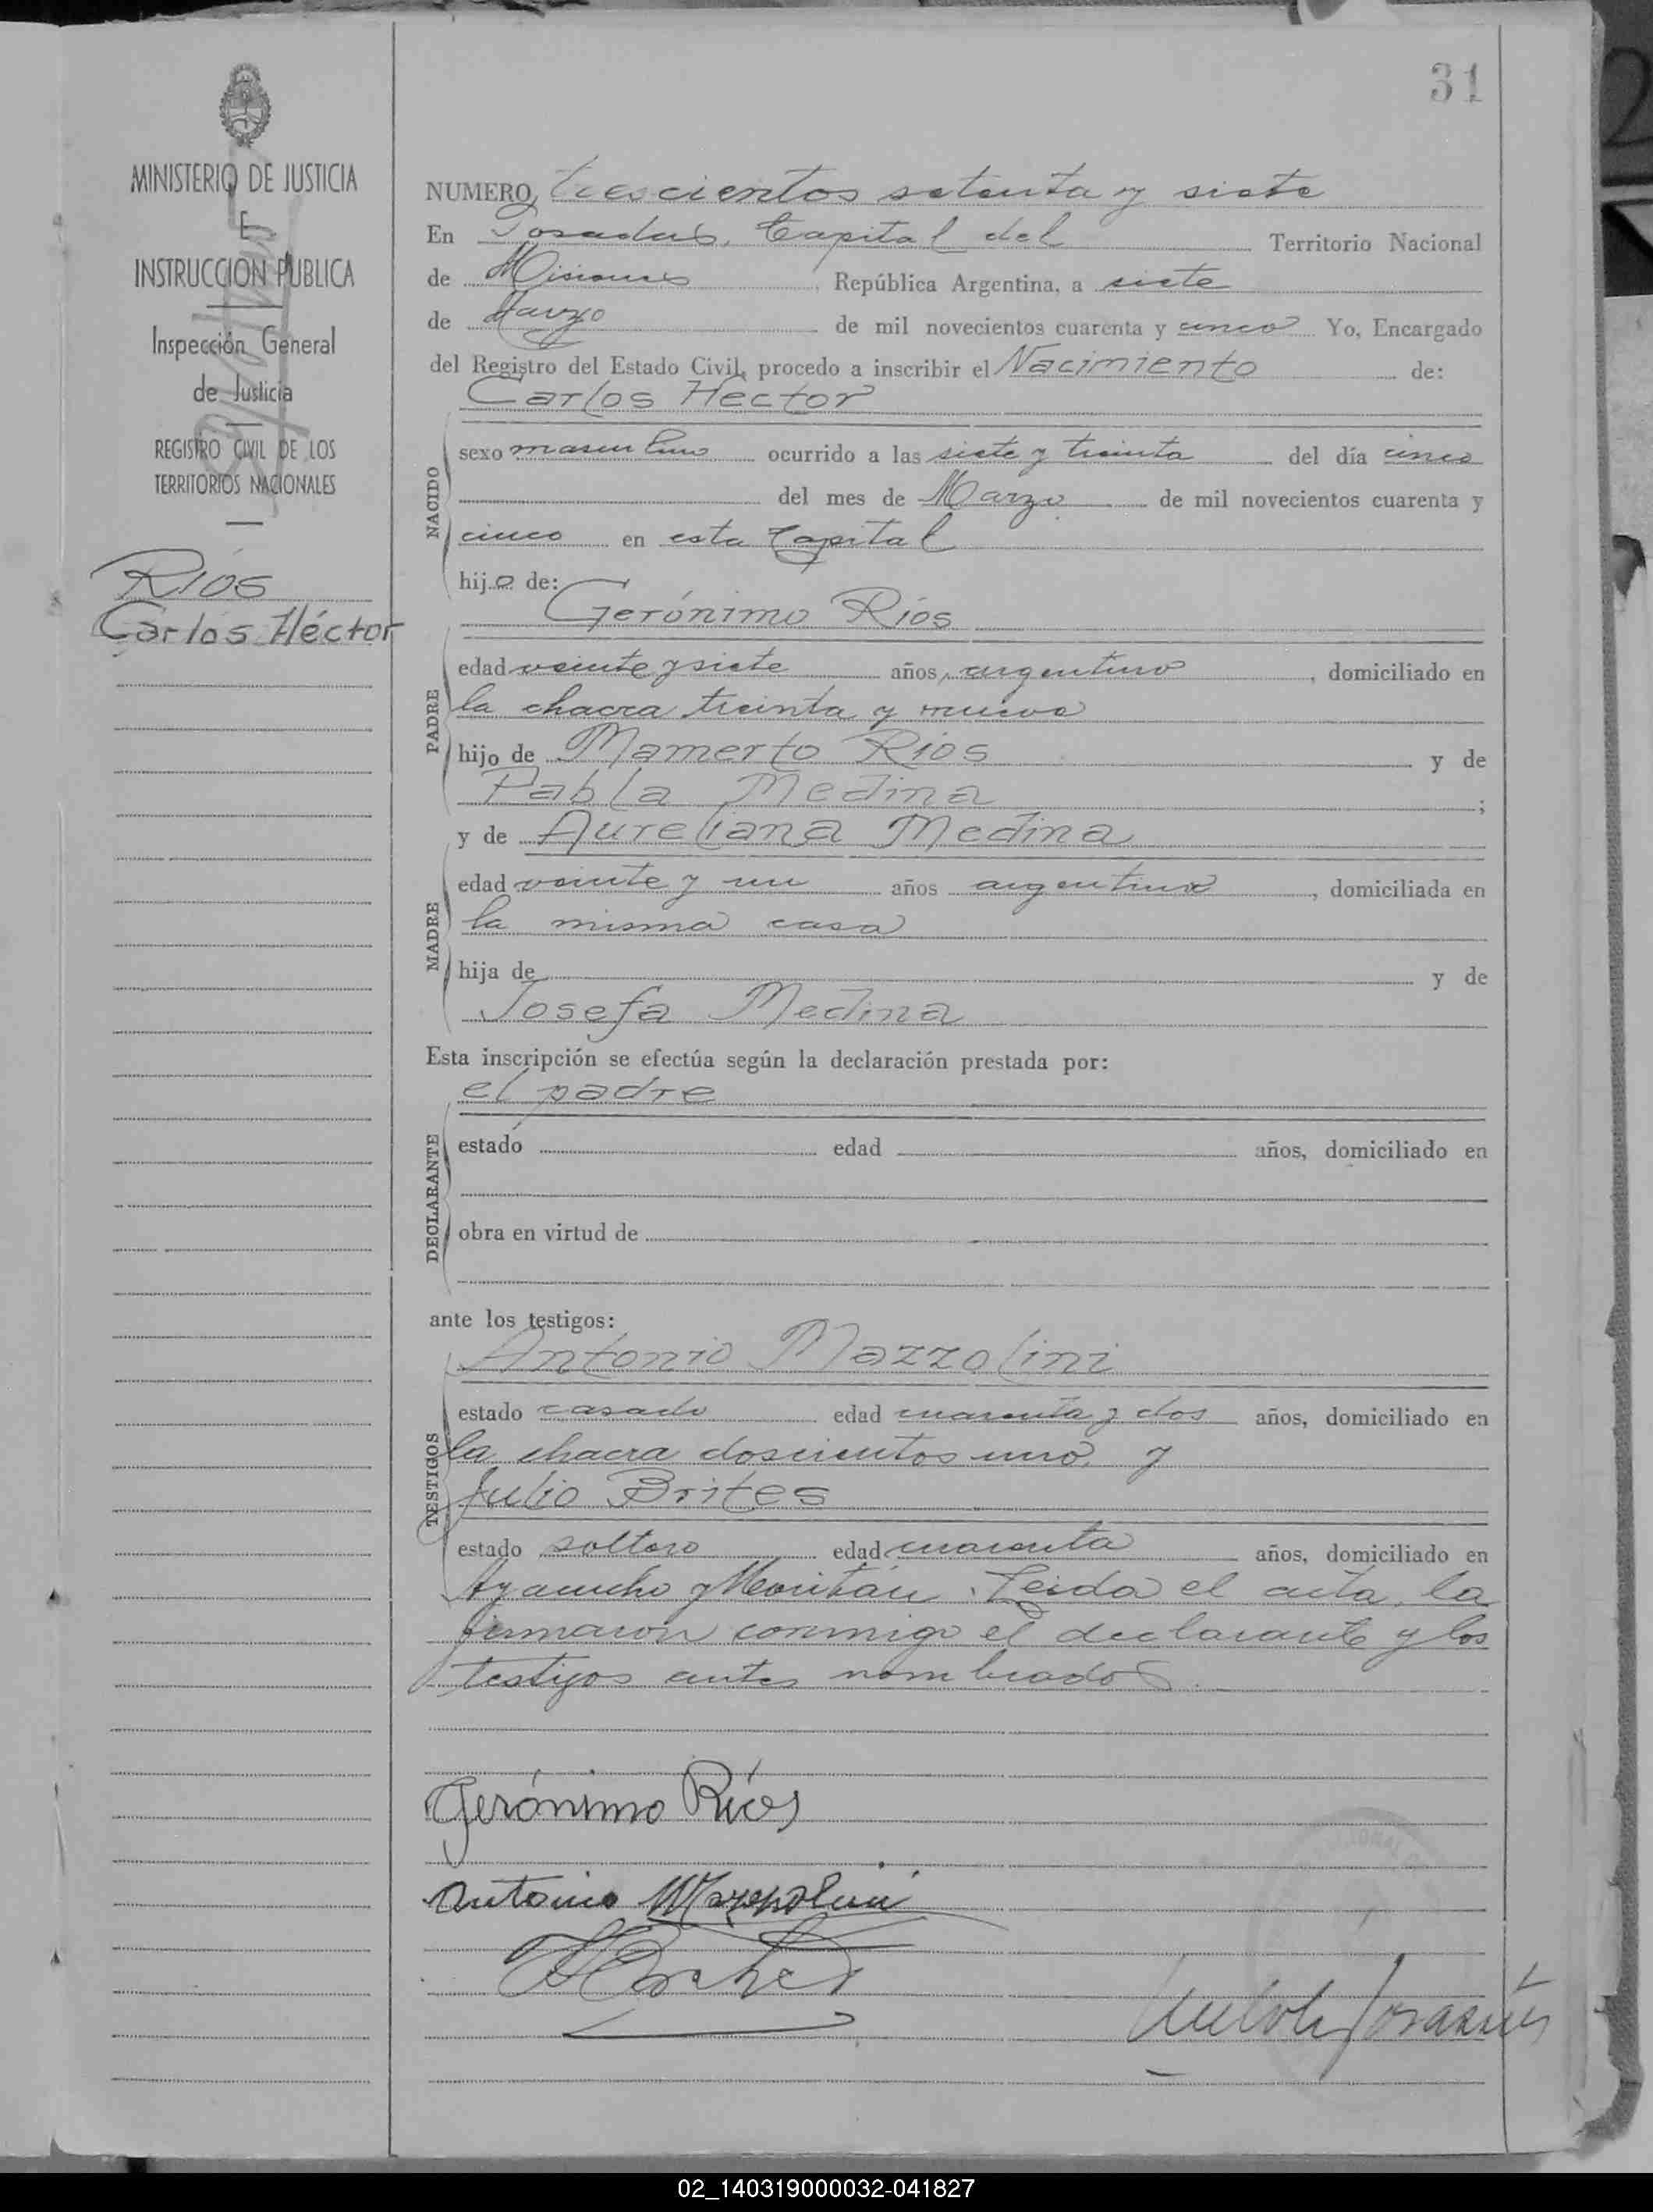 31
MINISTERIO DE JUSTICIA
E
INSTRUCCION PUBLICA
Inspección General
de Justicia
REGISTRO CIVIL DE LOS
TERRITORIOS NACIONALES
Ríos
Carlos Héctor
NUMERO trescientos setenta y siete
En Posadas, Capital del Territorio Nacional
de Misiones, República Argentina, a siete
de Marzo de mil novecientos cuarenta y cinco Yo, Encargado
del Registro del Estado Civil, procedo a inscribir el Nacimiento de:
Carlos Hector
NACIDO
sexo masculino ocurrido a las siete y treinta del día cinco
del mes de Marzo de mil novecientos cuarenta y
cinco en esta Capital
hijo de:
Gerónimo Ríos
PADRE
edad veinte y siete años, argentino, domiciliado en
la chacra treinta y nueve
hijo de Mamerto Ríos y de
Pabla Medina;
y de Aureliana Medina
MADRE
edad veinte y un años argentina, domiciliada en
la misma casa
hija de y de
Josefa Medina
Esta inscripción se efectúa según la declaración prestada por:
el padre
DECLARANTE
estado edad años, domiciliado en
obra en virtud de
ante los testigos:
Antonio Mazzolini
TESTIGOS
estado casado edad cuarenta y dos años, domiciliado en
la chacra doscientos uno, y
Julio Brites
estado soltero edad cuarenta años, domiciliado en
Ayacucho y . Leida el acta, la
firmaron conmigo el declarante y los
testigos antes nombrados.
Gerónimo Ríos
Antonio Mazzolini
02_140319000032-041827